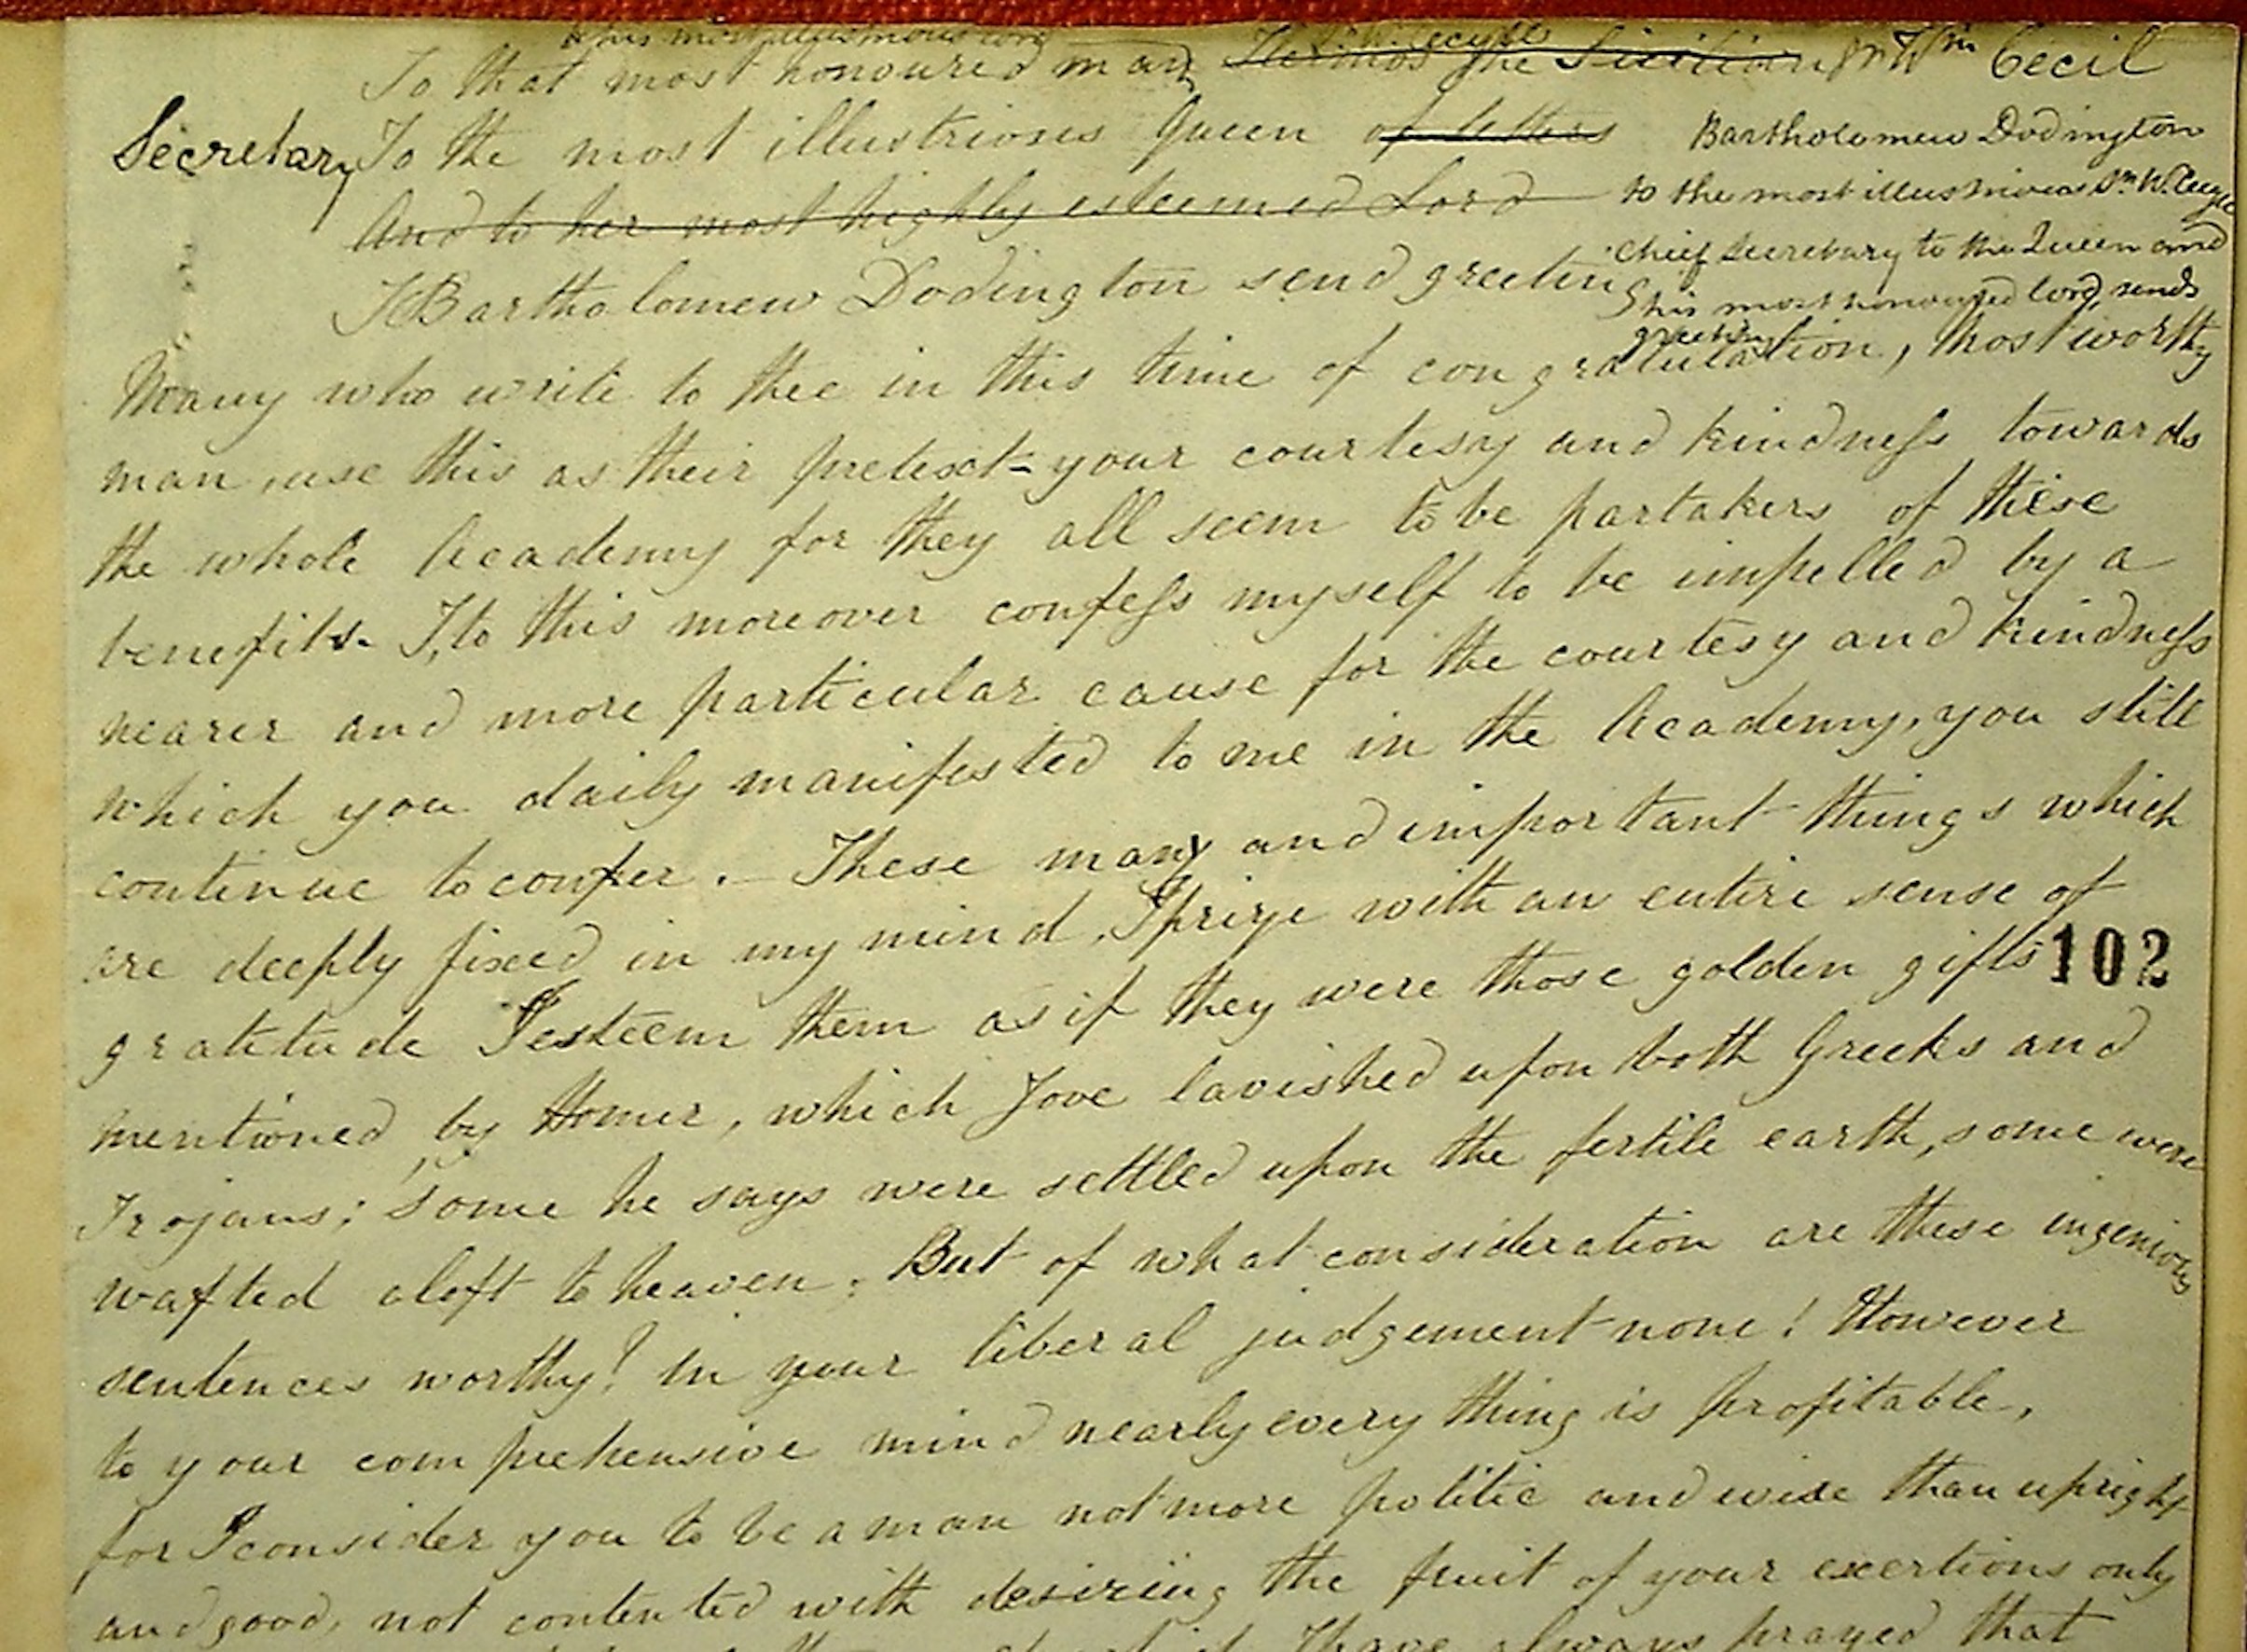 & his most illustrious lord
To that most honoured man Hermos the Sicilian Sr. Wm Cecil
Sr. W. Cecyll
Secretary To the most illustrious Queen of letters
And to her most highly esteemed Lord
I Bartholomew Dodington send greeting
Bartholomew Dodington
to the most illustrious Sr. W. Cecyll
chief secretary to the Queen and
his most honoured lord, sends
greeting
Many who write to thee in this time of congratulation, most worthy
man, use this as their pretext – your courtesy and kindneſs towards
the whole Academy for they all seem to be partakers of these
benefits. I, to this moreover confeſs myself to be impelled by a
nearer and more particular cause for the courtesy and kindneſs
which you daily manifested to me in the Academy, you still
continue to confer. – These many and important things which
are deeply fixed in my mind, I prize with an entire sense of
gratitude I esteem them as if they were those golden gifts
102
mentioned by Homer, which Jove lavished upon both Greeks and
Trojans; some he says were settled upon the fertile earth, some were
wafted aloft to heaven. But of what consideration are these ingenious
sentences worthy? In your liberal judgement none! However
to your comprehensive mind nearly every thing is profitable,
for I consider you to be a man not more politic and wise than upright
and good, not contented with desiring the fruit of your exertions only
I have always prayed that